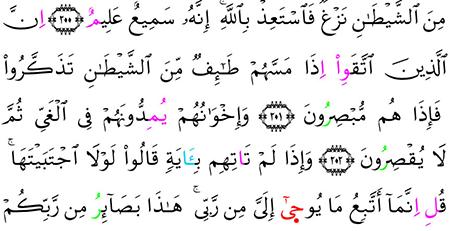 مِنَ ٱلشَّيۡطَٰنِ نَزۡغٞ فَٱسۡتَعِذۡ بِٱللَّهِۚ إِنَّهُۥ سَمِيعٌ عَلِيمٌ ﴿٢٠٠﴾ اِنَّ
ٱلَّذِينَ ٱتَّقَوِاْ اِذَا مَسَّهُمۡ طَٰٓئِفٞ مِّنَ ٱلشَّيۡطَٰنِ تَذَكَّرُواْ
فَإِذَا هُم مُّبۡصِرُونَ ﴿٢٠١﴾ وَإِخۡوَٰنُهُمۡ يُمِدُّونَهُمۡ فِي ٱلۡغَيِّ ثُمَّ
لَا يُقۡصِرُونَ ﴿٢٠٢﴾ وَإِذَا لَمۡ تَاتِهِم بِـَٔايَةٖ قَالُواْ لَوۡلَا ٱجۡتَبَيۡتَهَاۚ
قُلِ اِنَّمَآ أَتَّبِعُ مَا يُوحَىٰٓ إِلَيَّ مِن رَّبِّيۚ هَٰذَا بَصَآئِرُ مِن رَّبِّكُمۡ